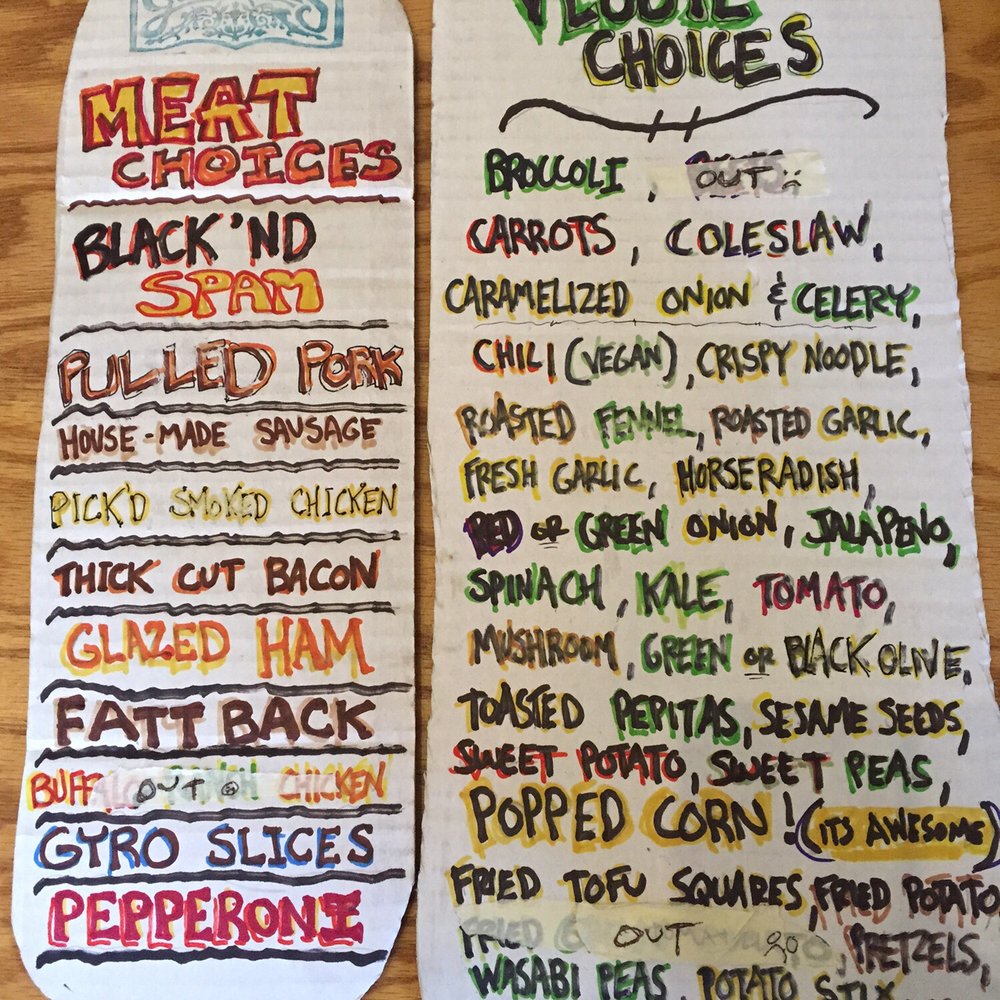 MEAT
CHOICES
BLACK 'ND
SPAM
PULLED PORK
HOUSE-MADE SAUSAGE
PICK'D SMOKED CHICKEN
THICK CUT BACON
GLAZED HAM
FATT BACK
BUFFALO OUT RANCH CHICKEN
GYRO SLICES
PEPPERONI
VEGGIE
CHOICES
BROCCOLI, OUT
CARROTS, COLESLAW,
CARAMELIZED ONION & CELERY,
CHILI (VEGAN), CRISPY NOODLE,
ROASTED FENNEL, ROASTED GARLIC,
FRESH GARLIC, HORSERADISH,
RED or GREEN ONION, JALAPENO,
SPINACH, KALE, TOMATO,
MUSHROOM, GREEN or BLACK OLIVE,
TOASTED PEPITAS, SESAME SEEDS,
SWEET POTATO, SWEET PEAS,
POPPED CORN! (ITS AWESOME)
FRIED TOFU SQUARES, FRIED POTATO
FRIED OUT
PRETZELS,
WASABI PEAS, POTATO STIX